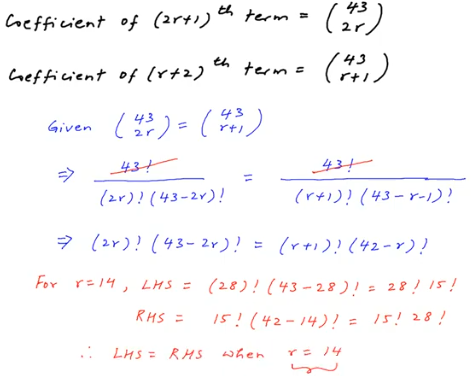 Coefficient of (2r+1)th term = (43 2r)
Coefficient of (r+2)th term = (43 r+1)
Given (43 2r) = (43 r+1)
⇒ 43! / (2r)! (43-2r)! = 43! / (r+1)! (43-r-1)!
⇒ (2r)! (43-2r)! = (r+1)! (42-r)!
For r=14, LHS = (28)! (43-28)! = 28! 15!
RHS = 15! (42-14)! = 15! 28!
∴ LHS = RHS when r = 14